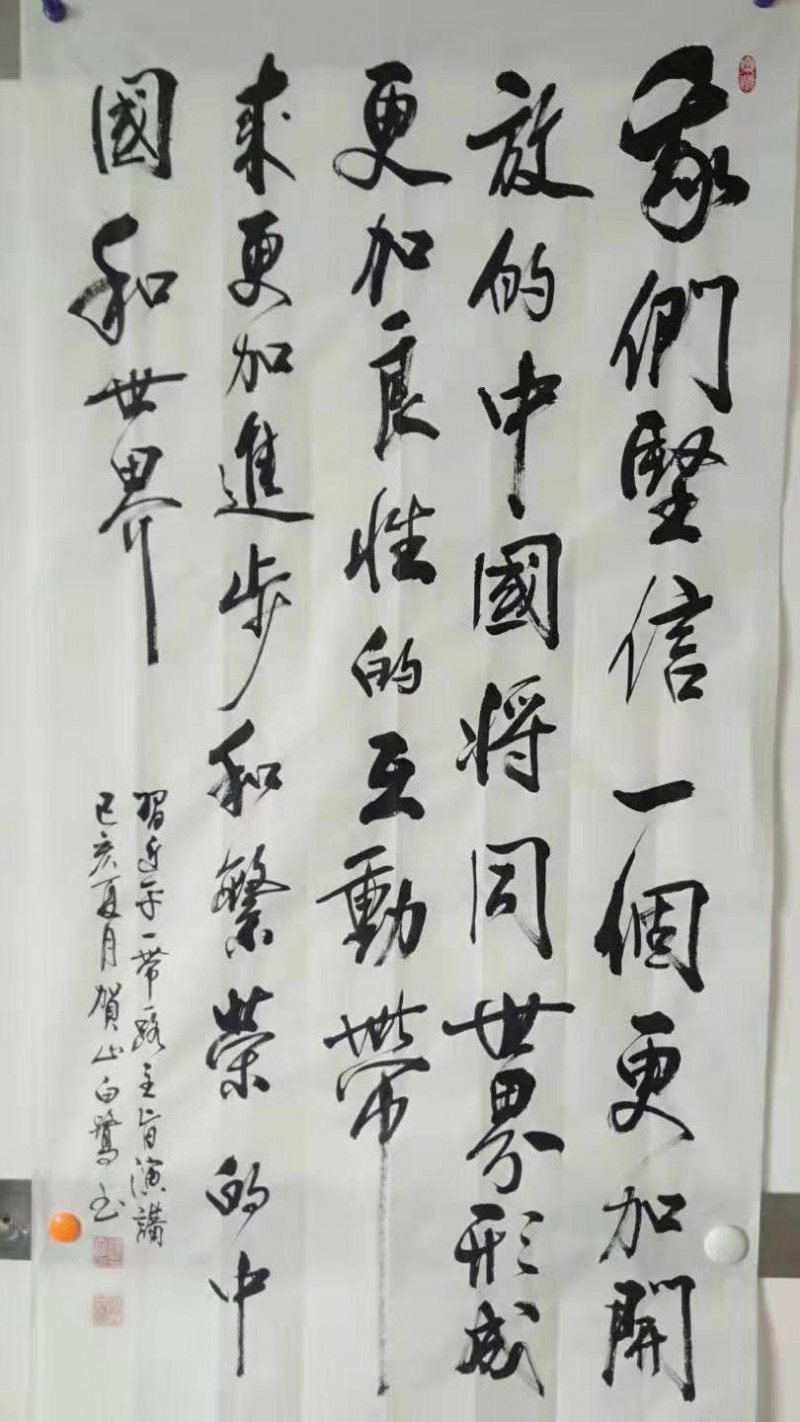 我們堅信一個更加開
放的中國將同世界形成
更加良性的互動帶
來更加進步和繁榮的中
國和世界
習近平一帶一路主旨演講
己亥夏月賀山白鷺书